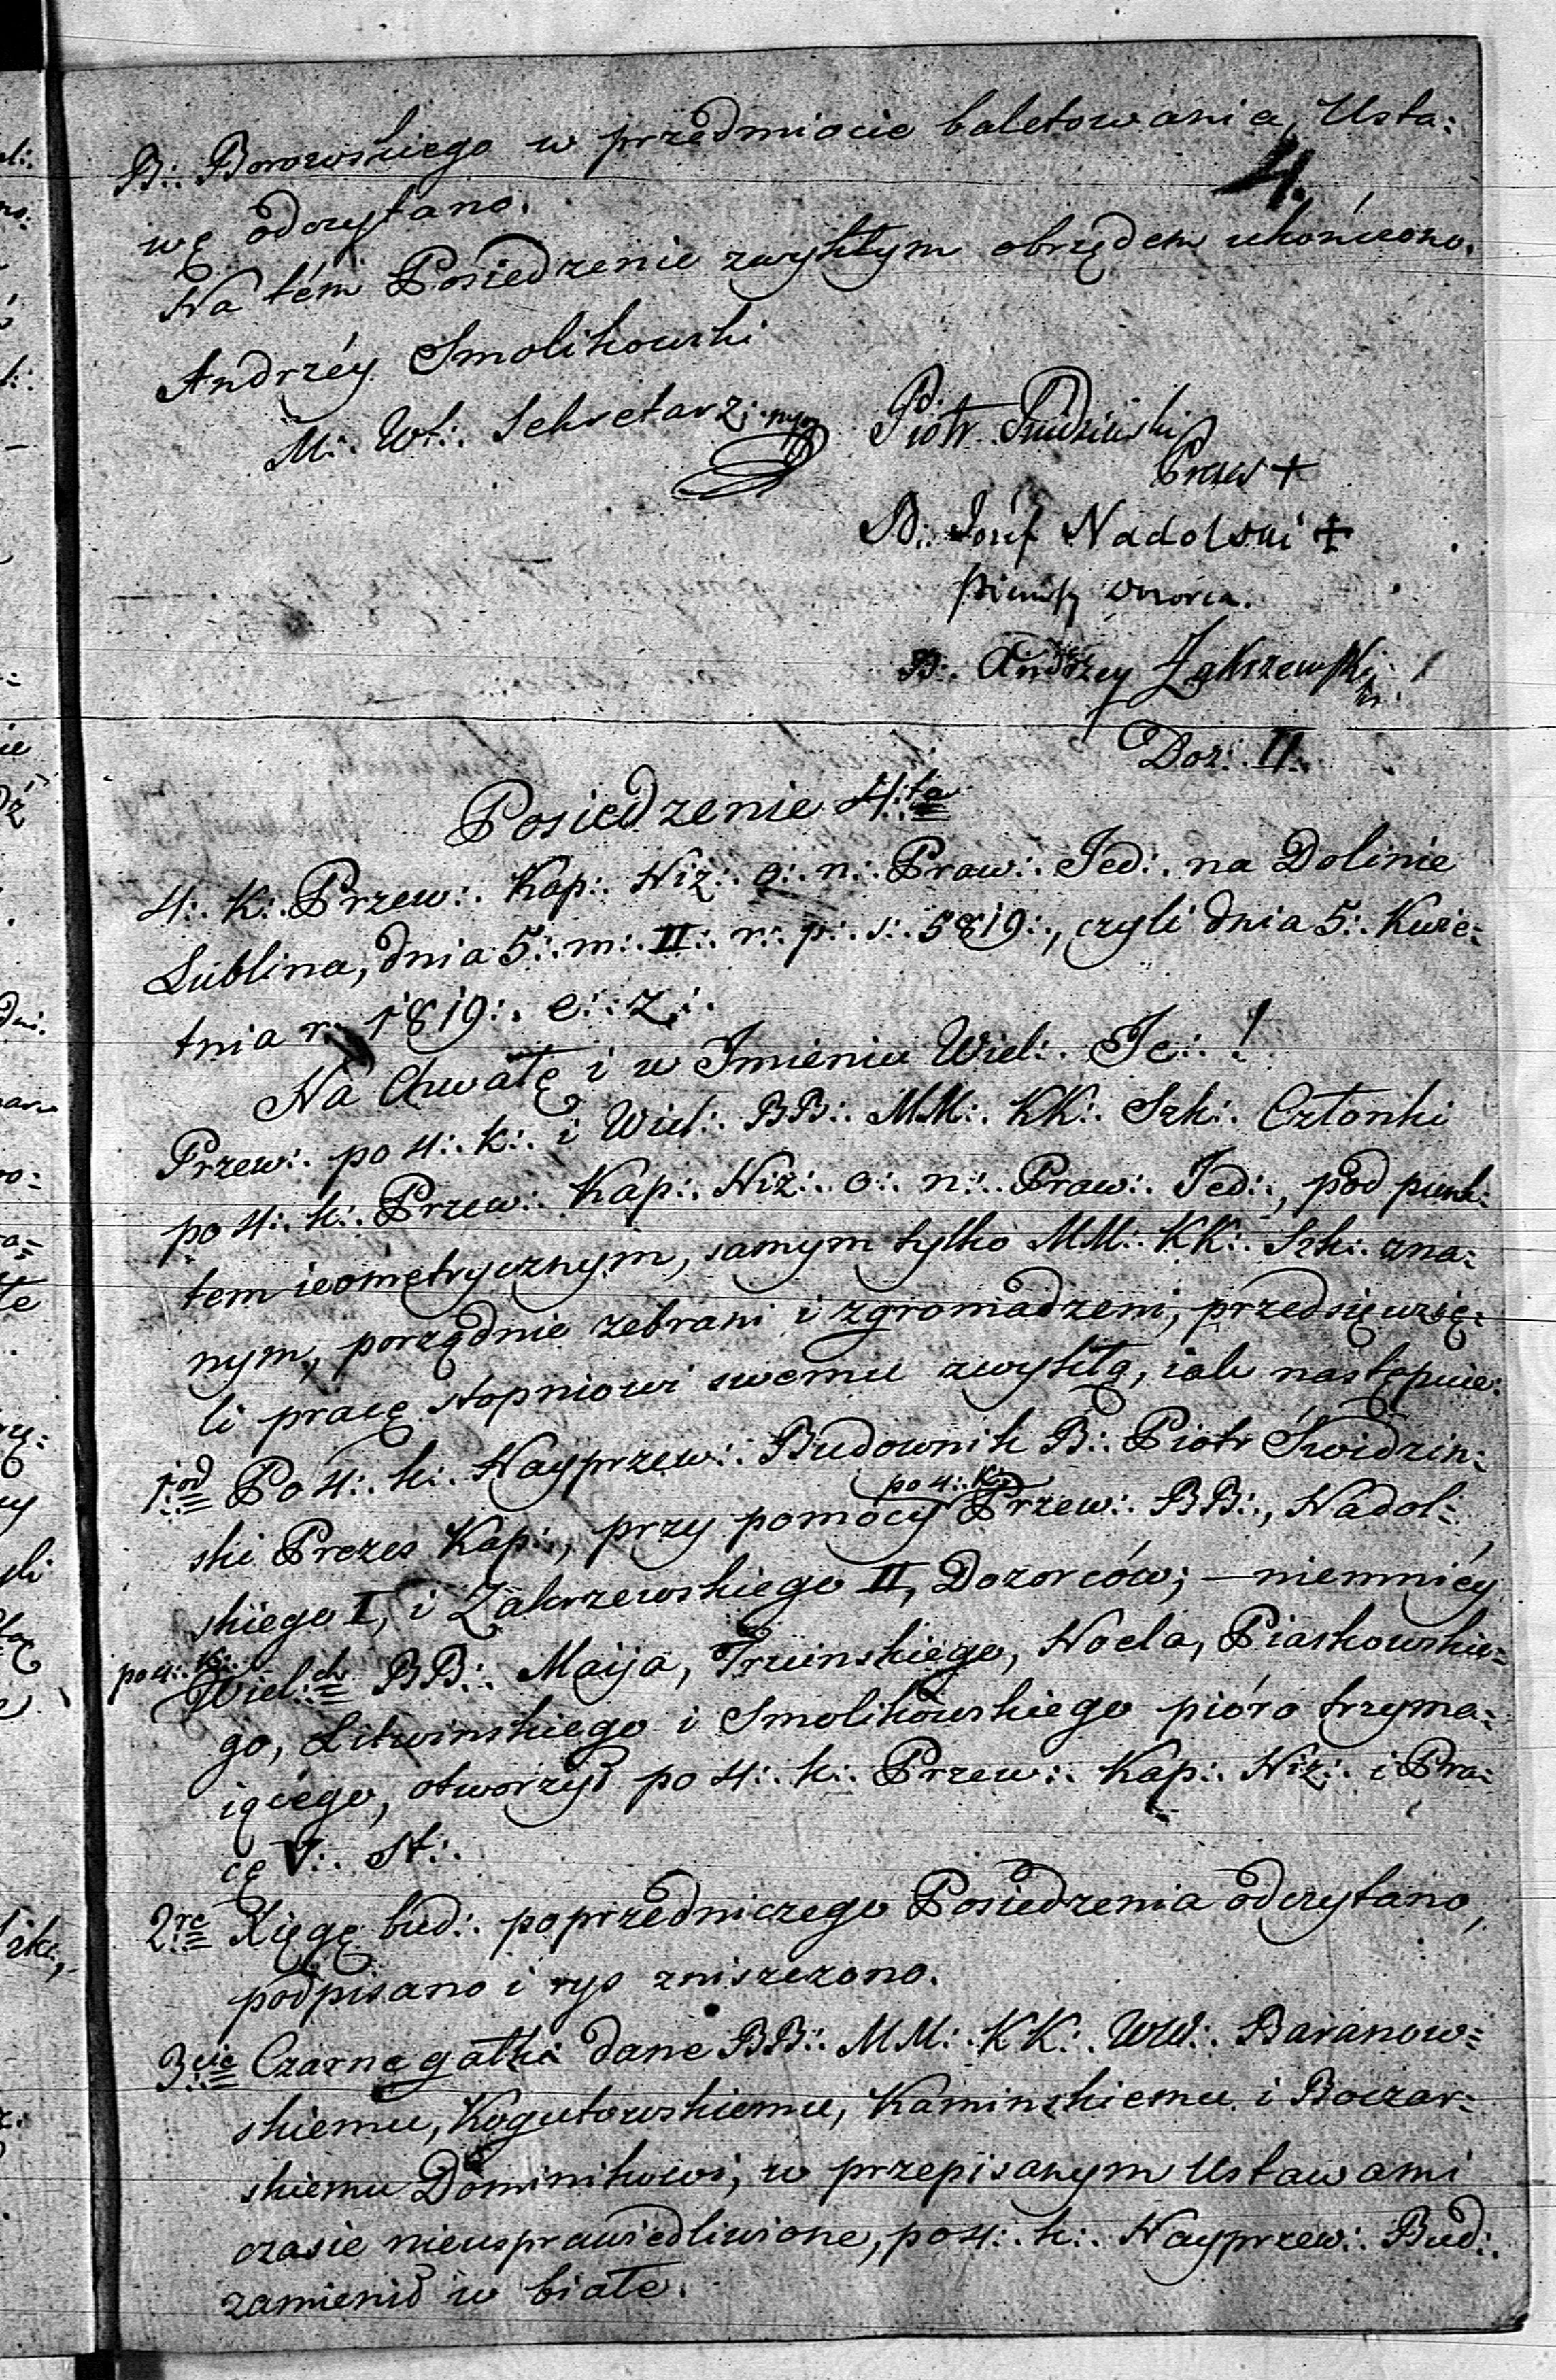 B∴ Borowskiego w przedmiocie baletowania, Usta:
4.
wę odczytano.
Na tém Posiedzenie zwykłym obrzędem ukończono.
Andrzéy Smolikowski
M∴ Wł∴ Sekretarz∴
Piotr Świdziński
Prezes +
B∴ Józef Nadolski +
Pierwszy Dozorca.
B∴ Andrzey Zakrzewski
Doz∴ II∴
Posiedzenie 4:te
4∴ k∴ Przew∴ Kap∴ Niż∴ o∴ n∴ Praw∴ Jed∴ na Dolinie
Lublina, dnia 5∴ m∴ II∴ r∴ p∴ s∴ 5819∴, czyli dnia 5∴ Kwie:
tnia r∴ 1819∴ e∴ z∴
Na Chwałę i w Imieniu Wiel∴ Je∴!
Przew∴ po 4∴ k∴ i Wiel∴ BB∴ MM∴ KK∴ Szk∴ Członki
po 4∴ k∴ Przew∴ Kap∴ Niż∴ o∴ n∴ Praw∴ Jed∴, pod punk:
tem ieometrycznym, samym tylko MM∴ KK∴ Szk∴ zna:
nym, porządnie zebrani i zgromadzeni, przedsięwzię:
li pracę stopniowi swemu zwykłą, iak następuie:
1:od Po 4∴ k∴ Nayprzew∴ Budownik B∴ Piotr Świdziń:
po 4∴ k∴
ski Prezes Kap∴, przy pomocy Przew∴ BB∴, Nadol:
skiego I, i Zakrzewskiego II, Dozorców; – niemniéy
po 4∴ k∴
Wiel:ch BB∴ Maija, Trzcinskiego, Noela, Piaskowskie:
go, Litwinskiego i Smolikowskiego pióro trzyma:
iącego, otworzył po 4∴ k∴ Przew∴ Kap∴ Niż∴ i Pra:
cę V∴ St∴
2:re Xięgę bud∴ poprzedniczego Posiedzenia odczytano,
podpisano i rys zniszczono.
3:cie Czarne gałki dane BB∴ MM∴ KK∴ WW∴ Baranow:
skiemu, Kogutowskiemu, Kaminskiemu i Boczar:
skiemu Dominikowi, w przepisanym Ustawami
czasie nieusprawiedliwione, po 4∴ k∴ Nayprzew∴ Bud∴
zamienił w białe.